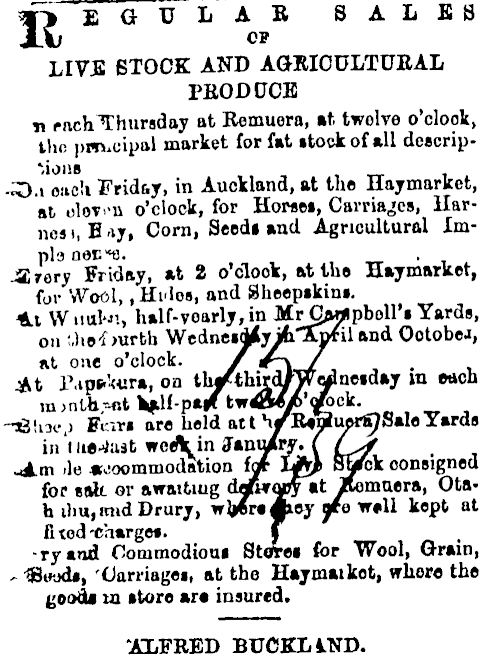 REGULAR SALES
OF
LIVE STOCK AND AGRICULTURAL
PRODUCE
n each Thursday at Remuera, at twelve o'clock,
the principal market for fat stock of all descrip-
tions
On each Friday, in Auckland, at the Haymarket,
at eleven o'clock, for Horses, Carriages, Har-
ness, Hay, Corn, Seeds and Agricultural Im-
plements.
Every Friday, at 2 o'clock, at the Haymarket,
for Wool, Hides, and Sheepskins.
At, half-yearly, in Mr Campbell's Yards,
on the fourth Wednesday in April and October,
at one o'clock.
At Papakura, on the third Wednesday in each
month at half-past twelve o'clock.
Sheep Fairs are held at the Remuera Sale Yards
in the last week in January.
Ample accommodation for Live Stock consigned
for sale or awaiting delivery at Remuera, Ota-
huhu, and Drury, where they are well kept at
fixed charges.
ry and Commodious Stores for Wool, Grain,
Seeds, Carriages, at the Haymarket, where the
goods in store are insured.
ALFRED BUCKLAND.